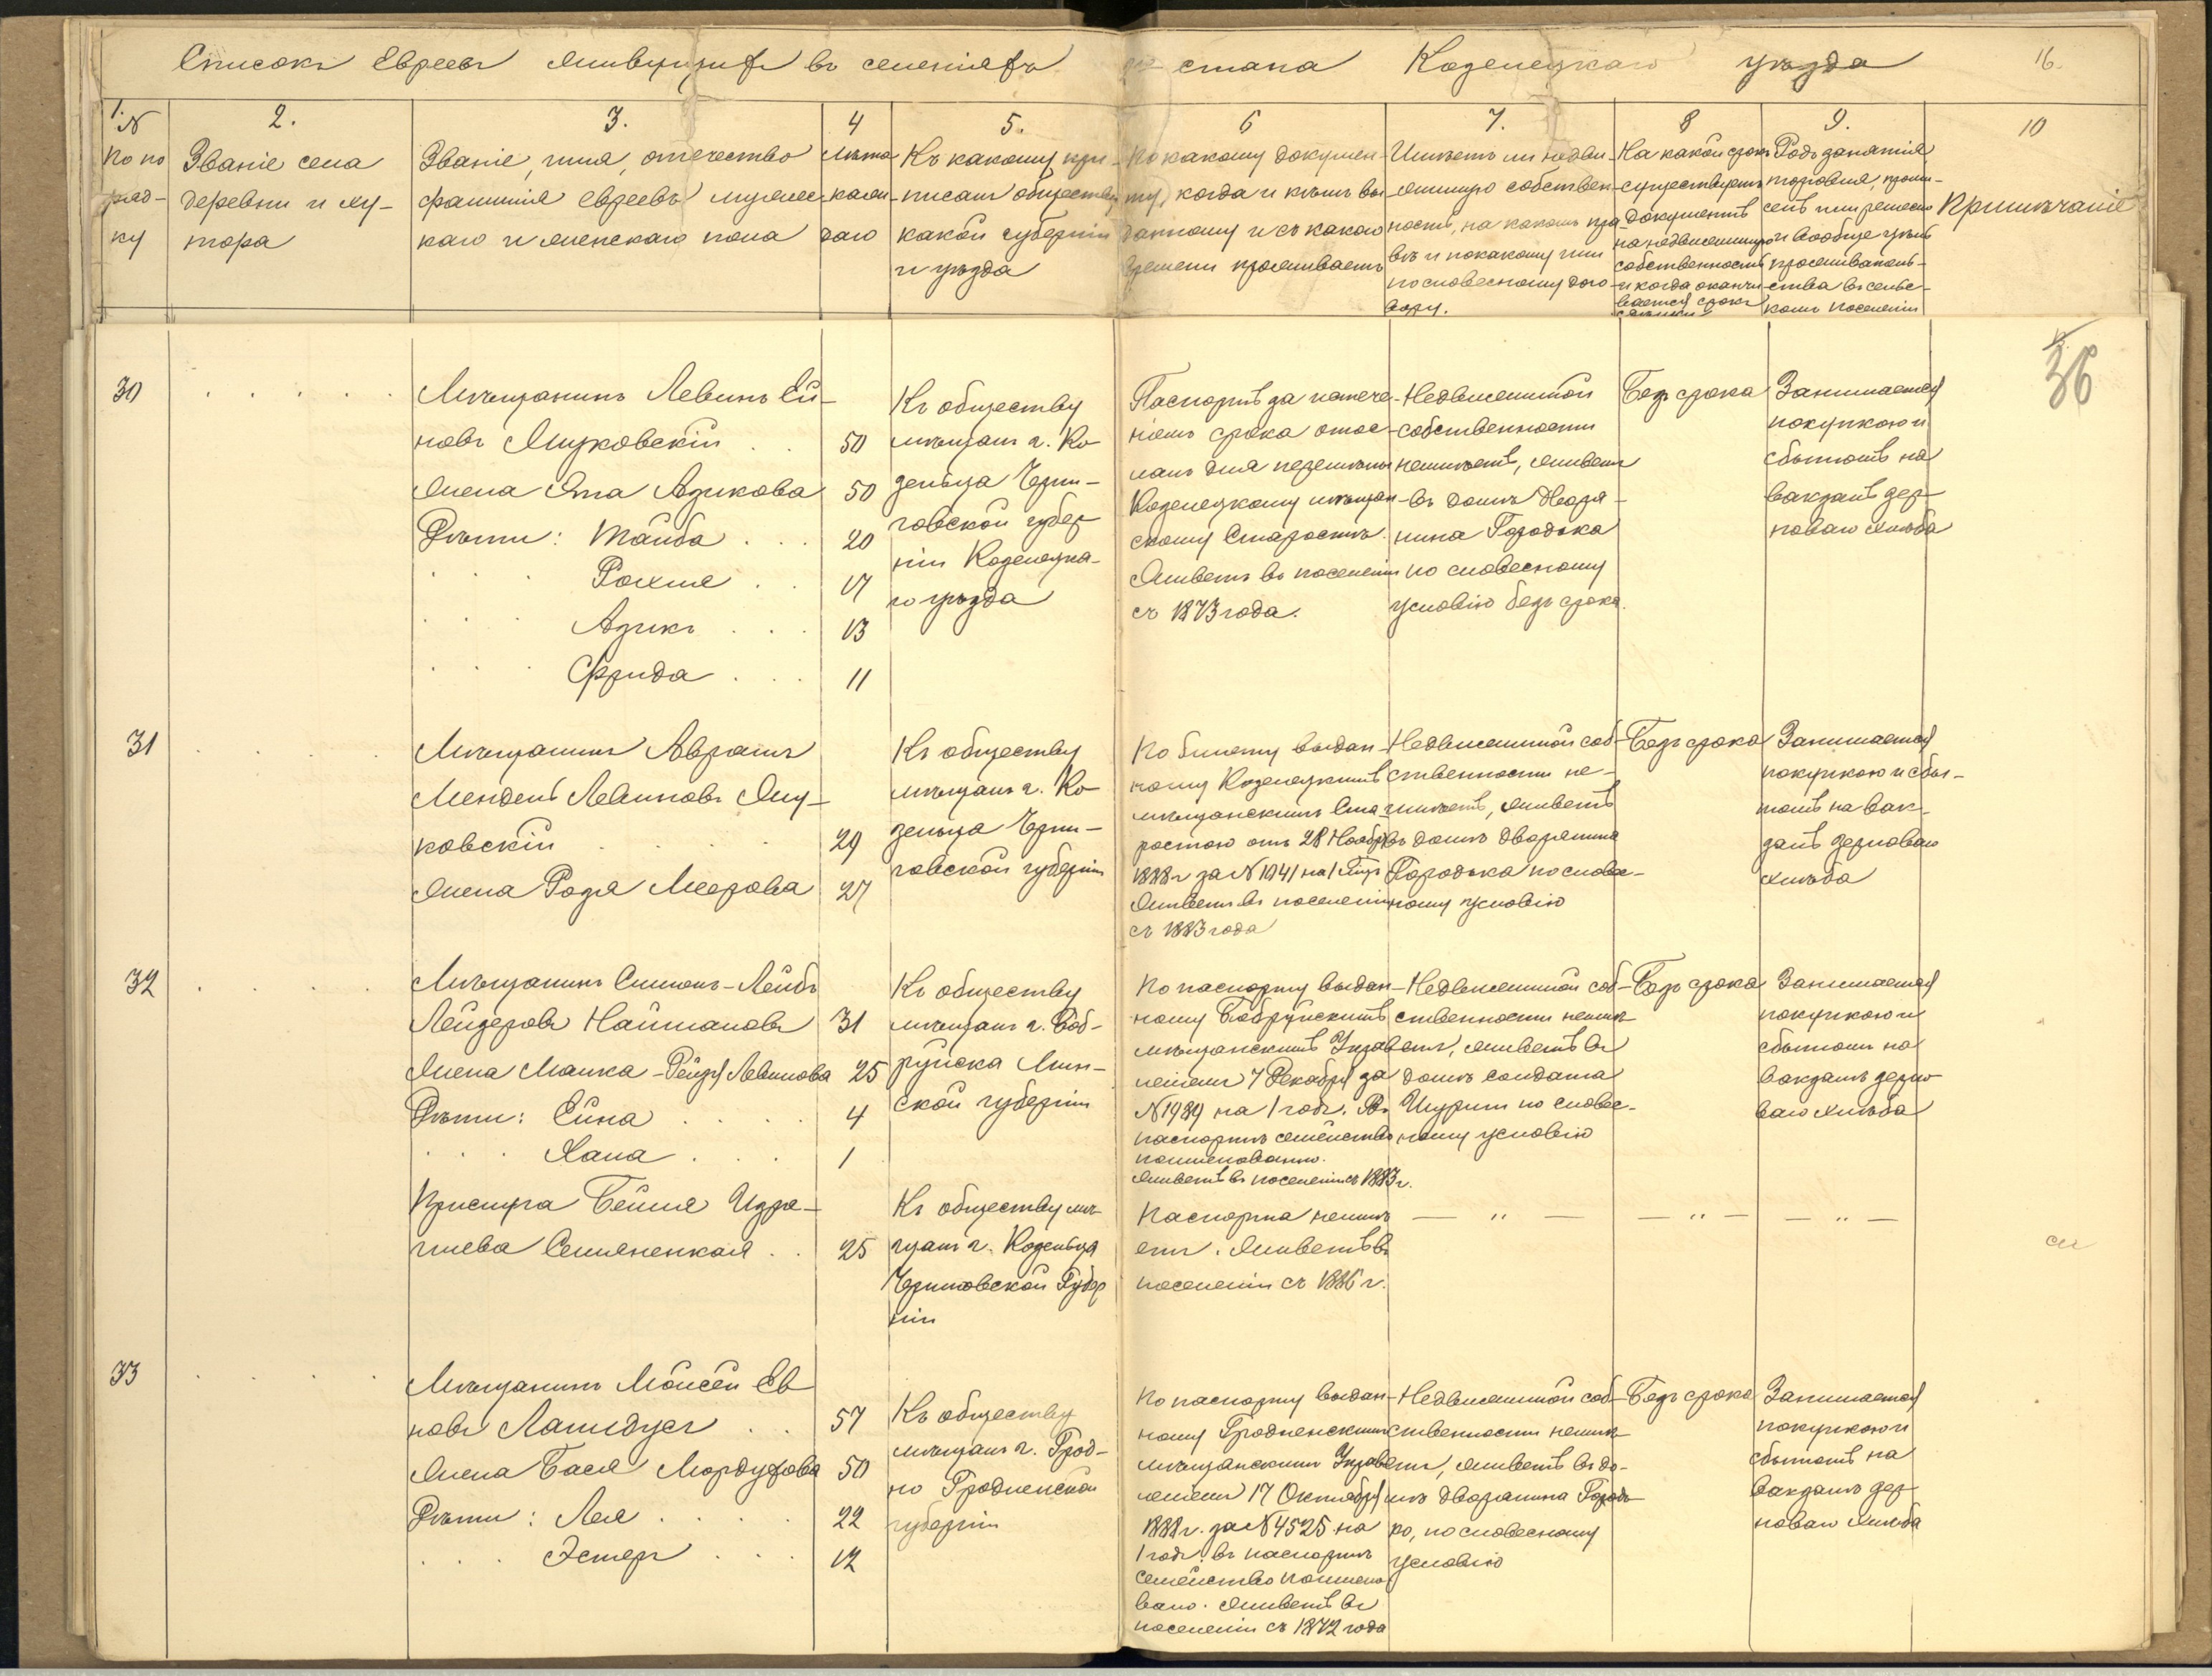 Списокъ Евреевъ живущихъ въ селеніяхъ стана Козелецкаго уѣзда
16.
1.
№
по по
ряд-
ку
2.
Званіе села
деревни и ху-
тора
3.
Званіе, имя, отчество
фамилія евреевъ мужес-
каго и женскаго пола
4
Лѣта
каж-
даго
5.
Къ какому при-
писанъ обществу
какой губерніи
и уѣзда
6
По какому докумен-
ту, когда и кѣмъ вы
данному и съ какого
времени проживаетъ
7.
Имѣетъ ли недви-
жимую собствен-
ность, на какомъ пра
вѣ и по какому или
по словесному дого-
вору.
8
На какой срокъ
существуетъ
документъ
на недвижимую
собственность
и когда оканчи-
вается срокъ
9.
Родъ занятія
торговля, промы-
селъ или ремесло
и вообще цѣль
прожиatельства въ сельс-
комъ поселеніи
10
Примѣчаніе
36
30
Мѣщанинъ Левинъ Ей-
новъ Януковскій . . 50
Жена Эта Азикова 50
Дѣти: Тайба . . . 20
Рохля . . 17
Азикъ . . . 13
Фрида . . . 11
Къ обществу
мѣщанъ г. Ко-
зельца Черни-
говской губер-
ніи Козелецка-
го уѣзда
Паспортъ за истече-
ніемъ срока отос-
ланъ для перемѣны
Козелецкому мѣщан-
скому Старостѣ.
Живетъ въ поселеніи
съ 1873 года.
Недвижимой
собственности
неимѣетъ, живетъ
въ домѣ Дворя-
нина Городька
по словесному
условію безъ срока.
Безъ срока
Занимается
покупкою и
сбытомъ на
вакзалѣ зер-
новаго хлѣба
31
Мѣщанинъ Аврамъ
Мендель Левиновъ Яну-
ковскій . . . . 29
Жена Родя Меерова 27
Къ обществу
мѣщанъ г. Ко-
зельца Черни-
говской губерніи
По билету выдан-
ному Козелецкимъ
мѣщанскимъ Ста-
ростою отъ 28 Ноября
1888 г за № 1041 на 1 годъ
Живетъ въ поселеніи
съ 1883 года
Недвижимой соб-
ственности не-
имѣетъ, живетъ
въ домѣ дворянина
Городька по словес-
ному условію
Безъ срока
Занимается
покупкою и сбы-
томъ на вак-
залѣ зерноваго
хлѣба
32
Мѣщанинъ Симонъ-Лейбъ
Лейзеровъ Наймановъ 31
Жена Малка-Рейзя Левинова 25
Дѣти: Ейна . . . . 4
Хана . . . 1
Къ обществу
мѣщанъ г. Боб-
руйска Мин-
ской губерніи
По паспорту выдан-
ному Бобруйскимъ
мѣщанскимъ Управ
леніемъ 7 Декабря за
№ 1989 на 1 годъ. Въ
паспортѣ семейство
поименовано.
Живетъ въ поселеніи съ 1883 г.
Недвижимой соб-
ственности неимѣ-
етъ, живетъ въ
домѣ солдата
по словес-
ному условію
Безъ срока
Занимается
покупкою и
сбытомъ на
вакзалѣ зерно
ваго хлѣба
Прислуга Бейля Изра-
илева Семяненкая . . 25
Къ обществу мѣ-
щанъ г. Козельца
Черниговской Губер
ніи
Паспорта неимѣ
етъ. Живетъ въ
поселеніи съ 1886 г.
— " —
— " —
— " —
33
Мѣщанинъ Мойсей Ев
новъ Лапидусъ . . 57
Жена Бася Мордухова 50
Дѣти: Лея . . . . 22
Эстеръ . . . 12
Къ обществу
мѣщанъ г. Грод-
но Гродненской
губерніи
По паспорту выдан-
ному Гродненскимъ
мѣщанскимъ Управ
леніемъ 17 Октября
1888 г. за № 4525 на
1 годъ, въ паспортѣ
семейство поимено
вано. Живетъ въ
поселеніи съ 1872 года
Недвижимой соб-
ственности неимѣ-
етъ, живетъ въ до-
мѣ дворянина Городь-
ко, по словесному
условію
Безъ срока
Занимается
покупкою и
сбытомъ на
вакзалѣ зер-
новаго хлѣба